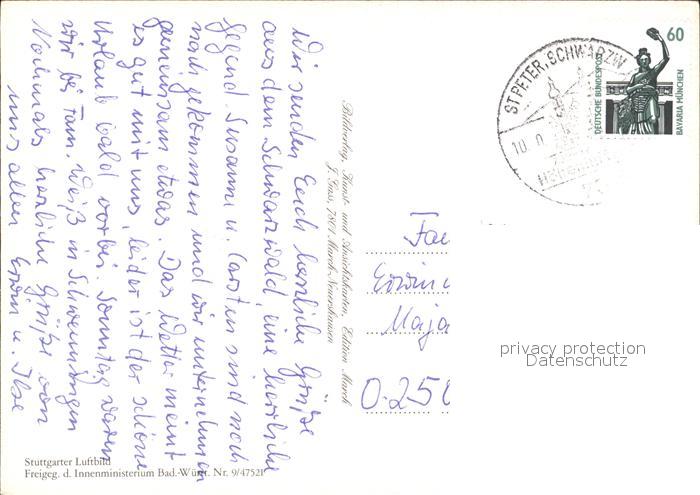 Wir senden Euch herzliche Grüße
aus dem Schwarzwald, eine herrliche
Gegend. Susanne u. Carsten sind noch
nach gekommen und wir unternehmen
gemeinsam etwas. Das Wetter meint
es gut mit uns, leider ist der schöne
Urlaub bald vorbei. Sonntag waren
wir bei Fam. Weiß in Schwenningen
Nochmals herzliche Grüße von
uns allen Erwin u. Ilse
Bildverlag, Kunst- und Ansichtskarten, Edition March
J. Gass, 7801 March-Neuershausen
ST. PETER, SCHWARZW
10.
60
DEUTSCHE BUNDESPOST
BAVARIA MÜNCHEN
Fa
Erwin
Maja
0.250
privacy protection
Datenschutz
Stuttgarter Luftbild
Freigeg. d. Innenministerium Bad.-Württ. Nr. 9/47521